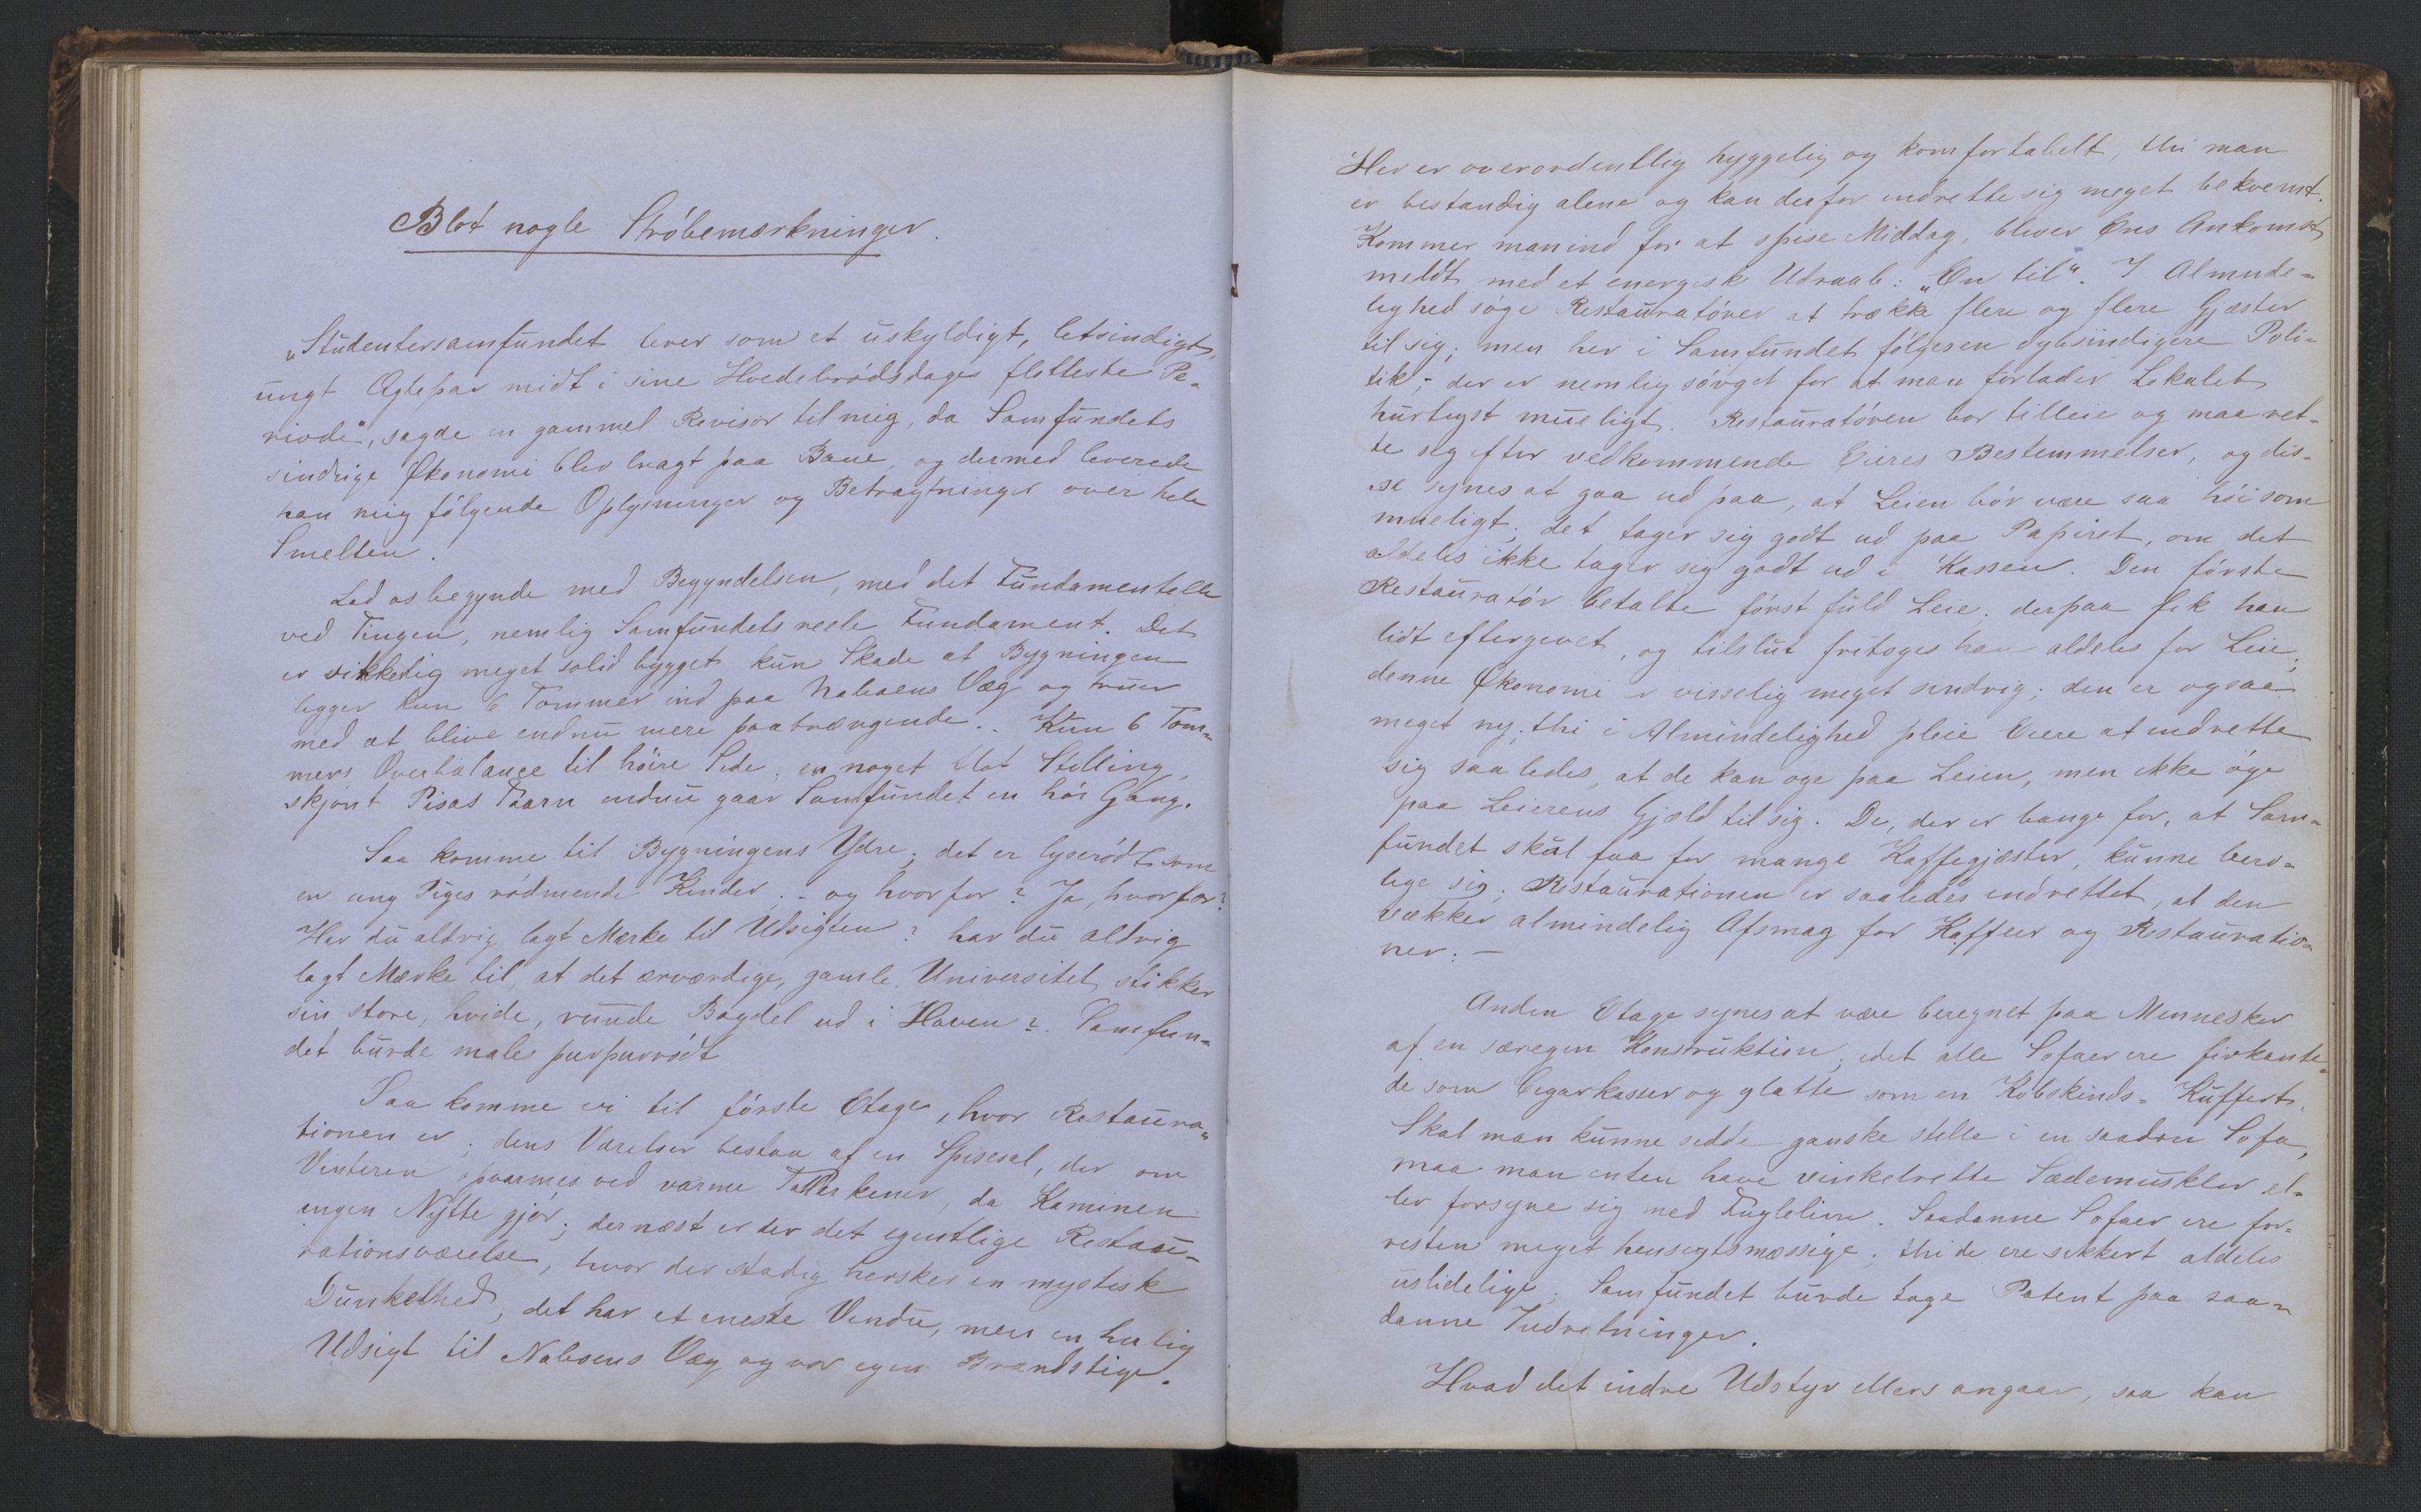 Blot nogle Ströbemærkninger.
„Studentersamfundet lever som et uskyldigt, letsindigt,
ungt Ægtepar midt i sine Hvedebrödsdages flotteste Pe-
riode", sagde en gammel Revisor til mig, da Samfundets
sindrige Økonomi blev bragt paa Bane, og dermed leverede
han mig fölgende Oplysninger og Betragtninger over hele
Smelten.
Lad os begynde med Begyndelsen, med det Fundamentelle
ved Tingen, nemlig Samfundets reele Fundament. Det
er sikkerlig meget solid bygget kun Skade at Bygningen
ligger kun 6 Tommer ind paa Naboens Væg og truer
med at blive endnu mere paatrængende. Kun 6 Tom-
mers Overbalance til höire Side, en noget flot Stilling,
skjönt Pisas Taarn endnu gaar Samfundet en höi Gang.
Saa komme til Bygningens Ydre; det er lyserödt som
en ung Piges rödmende Kinder; - og hvorfor? Ja, hvorfor?
Har du aldrig lagt Mærke til Udsigten? har du aldrig
lagt Mærke til, at det ærværdige, gamle Universitet stikker
sin store, hvide, runde Bagdel ud i Haven? Samfun-
det burde males purpurrödt
Saa komme vi til förste Etage, hvor Restaura-
tionen er; dens Værelser bestaa af en Spisesal, der om
Vinteren opvarmes ved varme Tallerkener, da Kaminen
ingen Nytte gjör; dernæst er der det egentlige Restau-
rationsværelse, hvor der stadig hersker en mystisk
Dunkelhed, det har et eneste Vindu, men en herlig
Udsigt til Naboens Væg og vor egen Brandstige.
Her er overordentlig hyggelig og komfortabelt, thi man
er bestandig alene og kan derfor indrette sig meget bekvemt.
Kommer man ind for at spise Middag, bliver Ens Ankomst
meldt med et energisk Udraab: „En til". I Alminde-
lighed söge Restauratörer at trække flere og flere Gjæster
til sig; men her i Samfundet fölges en dybsindigere Poli-
tik; der er nemlig sörget for at man forlader Lokalet
hurtigst mueligt. Restauratören bor tilleie og maa ret-
te sig efter vedkommende Eieres Bestemmelser, og dis-
se synes at gaa ud paa, at Leien bör være saa höi som
mueligt; det tager sig godt ud paa Papiret, om det
aldeles ikke tager sig godt ud i Kassen. Den förste
Restauratör betalte först fuld Leie; derpaa fik han
lidt eftergivet, og tilslut fritoges han aldeles for Leie;
denne Økonomi er visselig meget sindrig; den er ogsaa
meget ny; thi i Almindelighed pleie Eiere at indrette
sig saaledes, at de kan öge paa Leien, men ikke öge
paa Leierens Gjæld til sig. De, der er bange for, at Sam-
fundet skal faa for mange Kaffegjæster, kunne bero-
lige sig; Restaurationen er saaledes indrettet, at den
vækker almindelig Afsmag for Kaffeer og Restauratio-
ner. —
Anden Etage synes at være beregnet paa Mennesker
af en særegen Konstruktion; idet alle Sofaer ere firkante-
de som Cigarkasser og glatte som en Kobskinds-Kuffert.
Skal man kunne sidde ganske stille i en saadan Sofa,
maa man enten have vinkelrette Sædemuskler el-
ler forsyne sig med Fuglelim. Saadanne Sofaer ere for-
resten meget hensigtsmæssige; thi de ere sikkert aldeles
uslidelige; Samfundet burde tage Patent paa saa-
danne Indretninger.
Hvad det indre Udstyr ellers angaar, saa kan